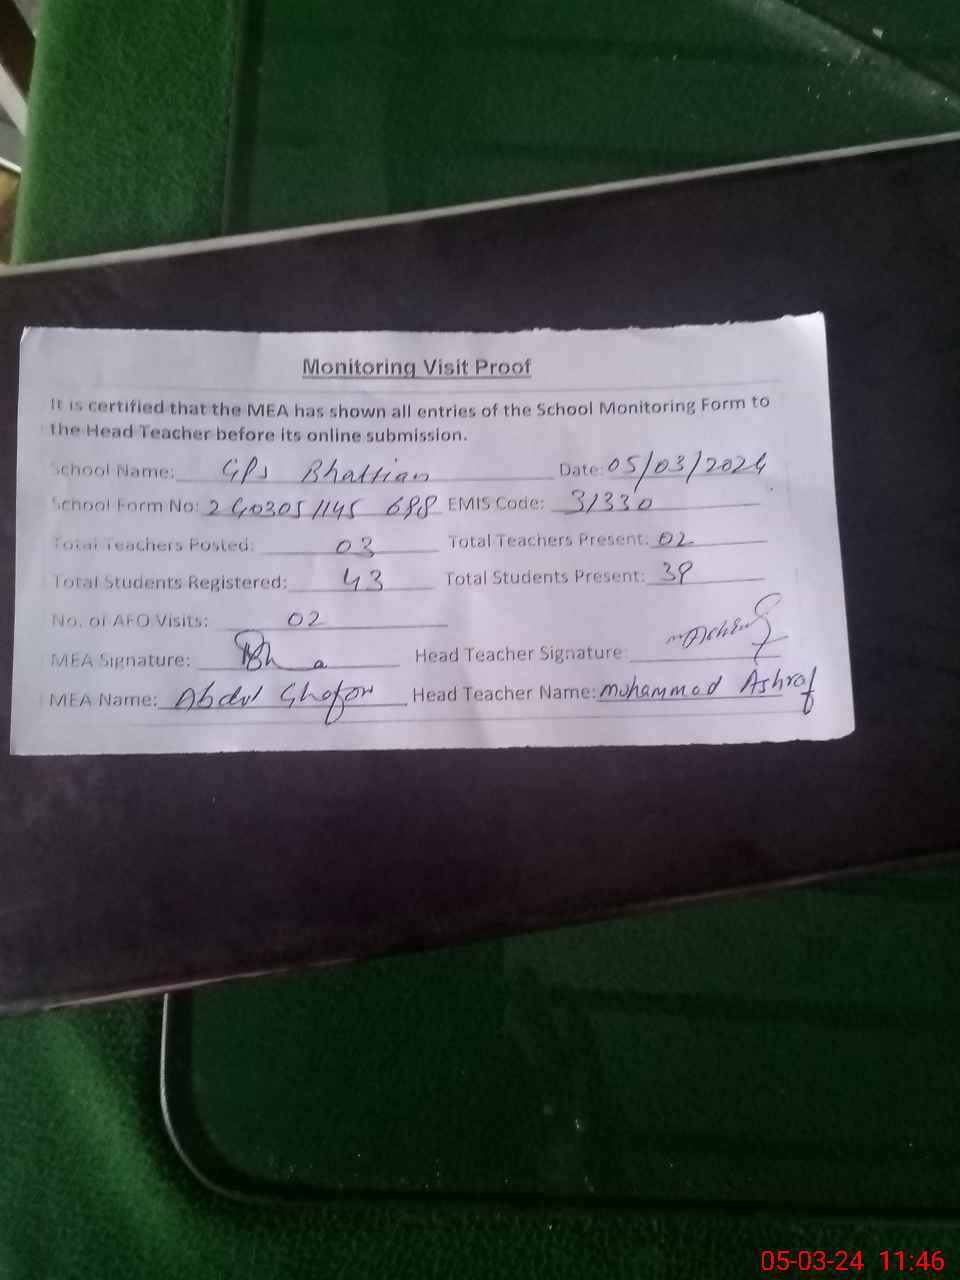 Monitoring Visit Proof
It is certified that the MEA has shown all entries of the School Monitoring Form to
the Head Teacher before its online submission.
School Name: GPS Bhattian Date: 05/03/2024
School Form No: 2403051145 698 EMIS Code: 31330
Total Teachers Posted: 03 Total Teachers Present: 02
Total Students Registered: 43 Total Students Present: 39
No. of AFO Visits: 02
MEA Signature: Head Teacher Signature:
MEA Name: Abdul Ghafoor Head Teacher Name: Muhammad Ashraf
05-03-24 11:46